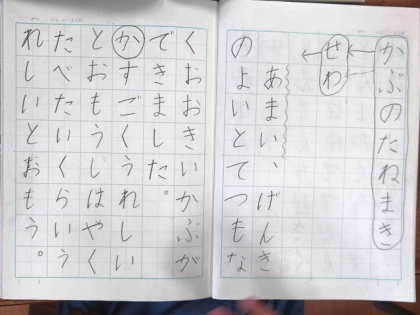 かぶのたねまき
せわ
あまい、げんき
のよいとてつもな
くおおきいかぶが
できました。
かすごくうれしい
とおもうじはやく
たべたいくらいう
れしいとおもう。